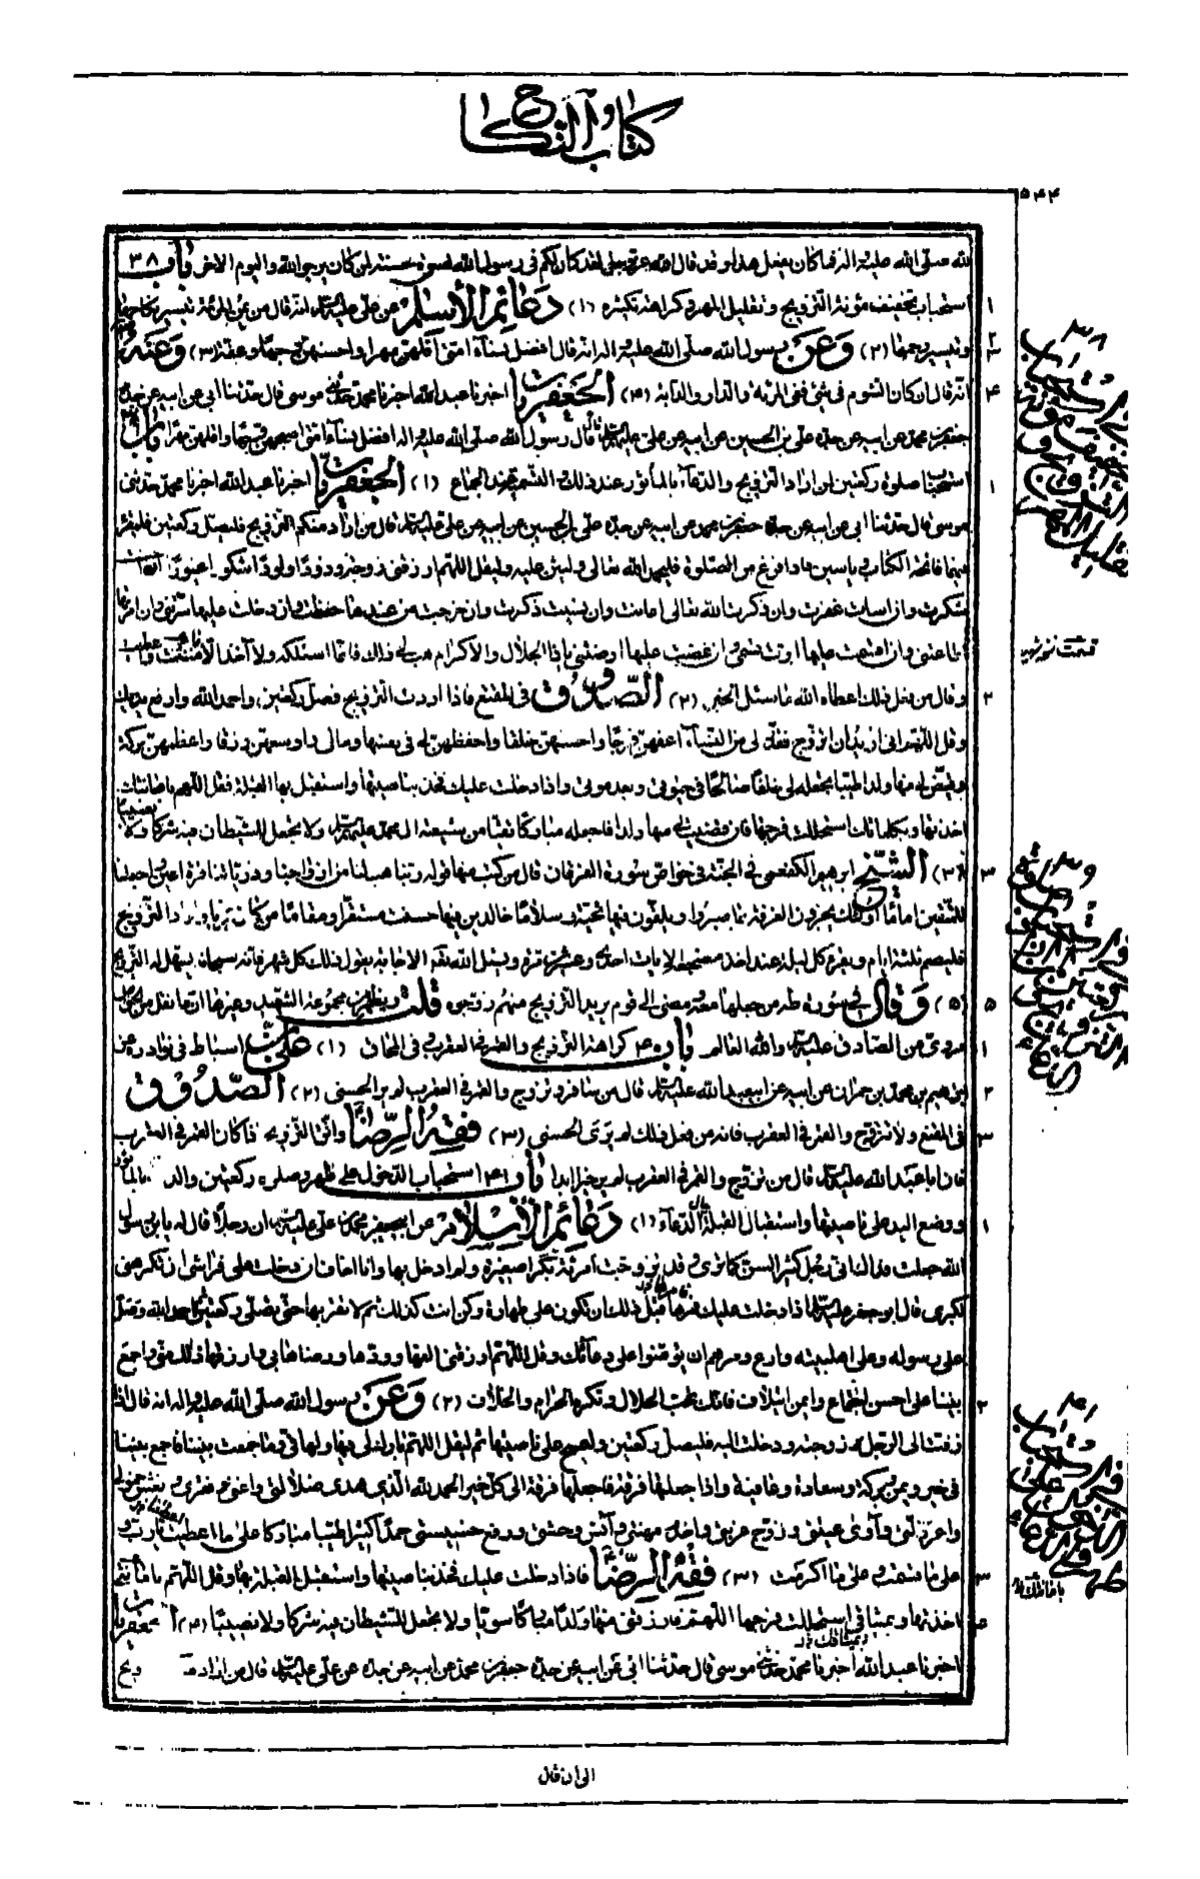 كتاب النكاح
٥٤٤
الله صلى الله عليه واله فما كان يفعل هذا وقد قال الله عز وجل لقد كان لكم في رسول الله اسوة حسنة لمن كان يرجو الله واليوم الاخر باب ٣٨
١ استحباب تخفيف مؤنة التزويج وتقليل المهر وكراهة تكثيره (١) دعائم الأسلام عن علي عليه السلام انه قال من يمن المرأة تيسير نكاحها
وتيسير رحمها (٢) وعن رسول الله صلى الله عليه واله انه قال افضل نساء امتي اقلهن مهرا واحسنهن وجها وعفة (٣) وعنه
٤ انه قال ان كان الشوم في شئ ففي المرئة والدار والدابة (٤) الجعفريات اخبرنا عبد الله اخبرنا محمد حدثني موسى قال حدثنا ابي عن ابيه عن جده
جعفر بن محمد عن ابيه عن جده علي بن الحسين عن ابيه عن علي عليه السلام قال قال رسول الله صلى الله عليه واله افضل نساء امتي اصبحهن وجها واقلهن مهرا باب
١ استحباب صلوة ركعتين لمن اراد التزويج والدعاء بالمأثور عند ذلك والتسمية عند الجماع (١) الجعفريات اخبرنا عبد الله اخبرنا محمد حدثني
موسى قال حدثنا ابي عن ابيه عن جده جعفر بن محمد عن ابيه عن جده علي بن الحسين عن ابيه عن علي عليه السلام قال من اراد منكم التزويج فليصل ركعتين فليقرء
فيهما فاتحة الكتاب وياسين فاذا فرغ من الصلوة فليحمد الله تعالى وليثن عليه وليقل اللهم ارزقني زوجة ودودا ولودا شكورا غيورا ان احسنت
شكرت وان اسأت غفرت وان ذكرت الله تعالى اعانت وان نسيت ذكرت وان خرجت من عندها حفظت وان دخلت عليها سرتني وان امرتها
اطاعتني وان اقسمت عليها ابرت قسمي وان غضبت عليها ارضتني ياذا الجلال والاكرام هب لي ذلك فانما اسئلكه ولا اخذ الا ما مننت واعطيت
٢ وقال من فعل ذلك اعطاه الله ما سئل الخبر (٢) الصدوق في المقنع فاذا اردت التزويج فصل ركعتين واحمد الله وارفع يديك
وقل اللهم اني اريد ان اتزوج فقدر لي من النساء اعفهن فرجا واحسنهن خلقا واحفظهن لي في نفسها ومالي واوسعهن رزقا واعظمهن بركة
وقيض لي منها ولدا طيبا تجعله لي خلفا صالحا في حيوتي وبعد موتي واذا دخلت عليك فخذ بناصيتها واستقبل بها القبلة فقل اللهم بامانتك
اخذتها وبكلماتك استحللت فرجها فان قضيت لي منها ولدا فاجعله مباركا تقيا من شيعة ال محمد عليهم السلام ولا تجعل للشيطان فيه شركا ولا نصيبا
٣ الشيخ ابراهيم الكفعمي في الجنة في خواص سورة الفرقان قال من كتب منها قوله ربنا هب لنا من ازواجنا وذرياتنا قرة اعين واجعلنا
للمتقين اماما اولئك يجزون الغرفة بما صبروا ويلقون فيها تحية وسلاما خالدين فيها حسنت مستقرا ومقاما من كان يريد التزويج
فليصم ثلثة ايام ويقرء كل ليلة عند اخذ مضجعه الايات احدى وعشرين مرة ويسئل الله تعالى يقول ذلك كل شهر فانه سبحانه يسهل له التزويج
٥ (٥) وقال في سورة طه من جعلها معه ومضى الى قوم يريد التزويج منهم زوجوه قلت ويظهر من مجموعة الشهيد وغيرها انهما نقل من
١ مروي عن الصادق عليه السلام والله العالم باب ٤٠ كراهة التزويج والقمر في العقرب وفي المحاق (١) علي بن اسباط في نوادره عن
٢ ابراهيم بن محمد بن حمران عن ابيه عن ابي عبد الله عليه السلام قال من سافر وتزوج والقمر في العقرب لم ير الحسنى (٢) الصدوق
٣ في المقنع ولا تتزوج والقمر في العقرب فانه من فعل ذلك لم ير الحسنى (٣) فقه الرضا واتق التزويج اذا كان القمر في العقرب
فان ابا عبد الله عليه السلام قال من تزوج والقمر في العقرب لم ير خيرا ابدا باب ٤١ استحباب الدخول على طهر وصلوة ركعتين والدعاء بالمأثور
١ ووضع اليد على ناصيتها واستقبال القبلة حال الدعاء (١) دعائم الأسلام عن ابي جعفر محمد بن علي عليه السلام ان رجلا قال له يا بن رسول
الله جعلت فداك اني رجل كثير السن كما ترى وقد تزوجت امرئة بكرا صغيرة ولم ادخل بها وانا اخاف ان دخلت على فراشي ان تكرهني
لكبري قال ابو جعفر عليه السلام اذا دخلت عليك فمرها قبل ذلك ان تكون على طهارة وكن انت كذلك ثم لا تقربها حتى تصلي ركعتين ثم احمد الله وصل
على رسوله وعلى اهل بيته وادع ومرهم ان يؤمنوا على دعائك وقل اللهم ارزقني الفها وودها ورضاها بي وارزقها ذلك مني واجمع
٢ بيننا على احسن اجتماع وايمن ائتلاف فانك تحب الحلال وتكره الحرام والخلاف (٢) وعن رسول الله صلى الله عليه واله انه قال اذا
زفت الى الرجل زوجته ودخلت اليه فليصل ركعتين وليمسح على ناصيتها ثم ليقل اللهم بارك لي فيها ولها في وما جمعت بيننا فاجمع بيننا
في خير ويمن وبركة وسعادة وعافية واذا جعلتها فرقة فاجعلها فرقة الى كل خير الحمد لله الذي هدى ضلالتي واغنى فقري ونعش خمولي
واعز ذلتي وآوى عيلتي وزوج عزبتي واخدم مهنتي وآنس وحشتي ورفع خسيستي حمدا كثيرا طيبا مباركا على ما اعطيت يا رب و
٣ على ما قسمت وعلى ما اكرمت (٣) فقه الرضا فاذا دخلت عليك فخذ بناصيتها واستقبل القبلة بها وقل اللهم بامانتي
٤ اخذتها وبميثاقي استحللت فرجها اللهم فارزقني منها ولدا مباركا سويا ولا تجعل للشيطان فيه شركا ولا نصيبا (٤) الجعفريات
اخبرنا عبد الله اخبرنا محمد حدثني موسى قال حدثنا ابي عن ابيه عن جده جعفر بن محمد عن ابيه عن جده عن علي عليه السلام قال من اراد منكم التزويج
الى ان قال